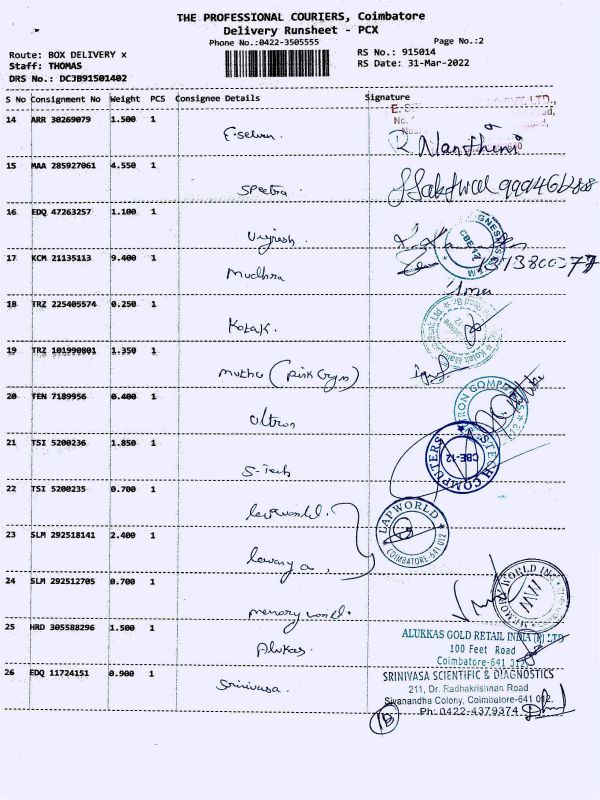 THE PROFESSIONAL COURIERS, Coimbatore
Delivery Runsheet - PCX
Phone No.:0422-3505555
Page No.:2
Route: BOX DELIVERY x
RS No.: 915014
Staff: THOMAS
RS Date: 31-Mar-2022
DRS No.: DCJB91501402
S No Consignment No Weight PCS Consignee Details Signature
14 ARR 30269079 1.500 1
E-selvan.
15 MAA 285927061 4.550 1
Spectra
16 EDQ 47263257 1.100 1
Vignesh.
CBE-12
17 KCM 21135113 9.400 1
Mudhra
18 TRZ 225405574 0.250 1
Kotak.
19 TRZ 101990801 1.350 1
Muthu (Pink Gym)
20 TEN 7189956 0.400 1
Ultron
21 TSI 5200236 1.850 1
S-Tech
S-TECH COMPUTERS
CBE-12
22 TSI 5200235 0.700 1
lapworld.
LAPWORLD
COIMBATORE-641 012
23 SLM 292518141 2.400 1
24 SLM 292512705 0.700 1
memory world.
MEMORY WORLD INC
MWI
25 HRD 305588296 1.500 1
Alukas.
ALUKKAS GOLD RETAIL INDIA (P) LTD
100 Feet Road
Coimbatore-641 012
26 EDQ 11724151 0.900 1
Srinivasa.
SRINIVASA SCIENTIFIC & DIAGNOSTICS
211, Dr. Radhakrishnan Road
Sivanandha Colony, Coimbatore-641 012.
Ph: 0422-4379374